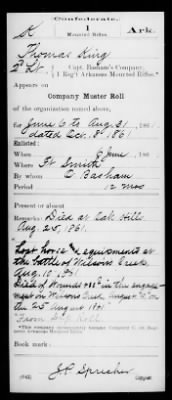 Confederate.
K
1 Mounted Rifles.
Ark.
Thomas King
2d Lt., Capt. Basham's Company,
1 Reg't Arkansas Mounted Rifles.*
Appears on
Company Muster Roll
of the organization named above,
for June 6 to Aug. 31, 186
dated Oct. 8, 1861
Enlisted:
When 6 June, 186
Where Ft Smith
By whom O Basham
Period 12 mos
Present or absent
Remarks: Died at Oak Hills
Aug. 25, 1861.
"Lost horse & equipments at
the battle of Wilsons Creek
Aug. 10, 1861
Died of Wounds in the engage-
ment on Wilsons Creek August 10" on
the 25" August 1861"
From
Book mark:
J. P. Sprecher
(642)
Copyist.